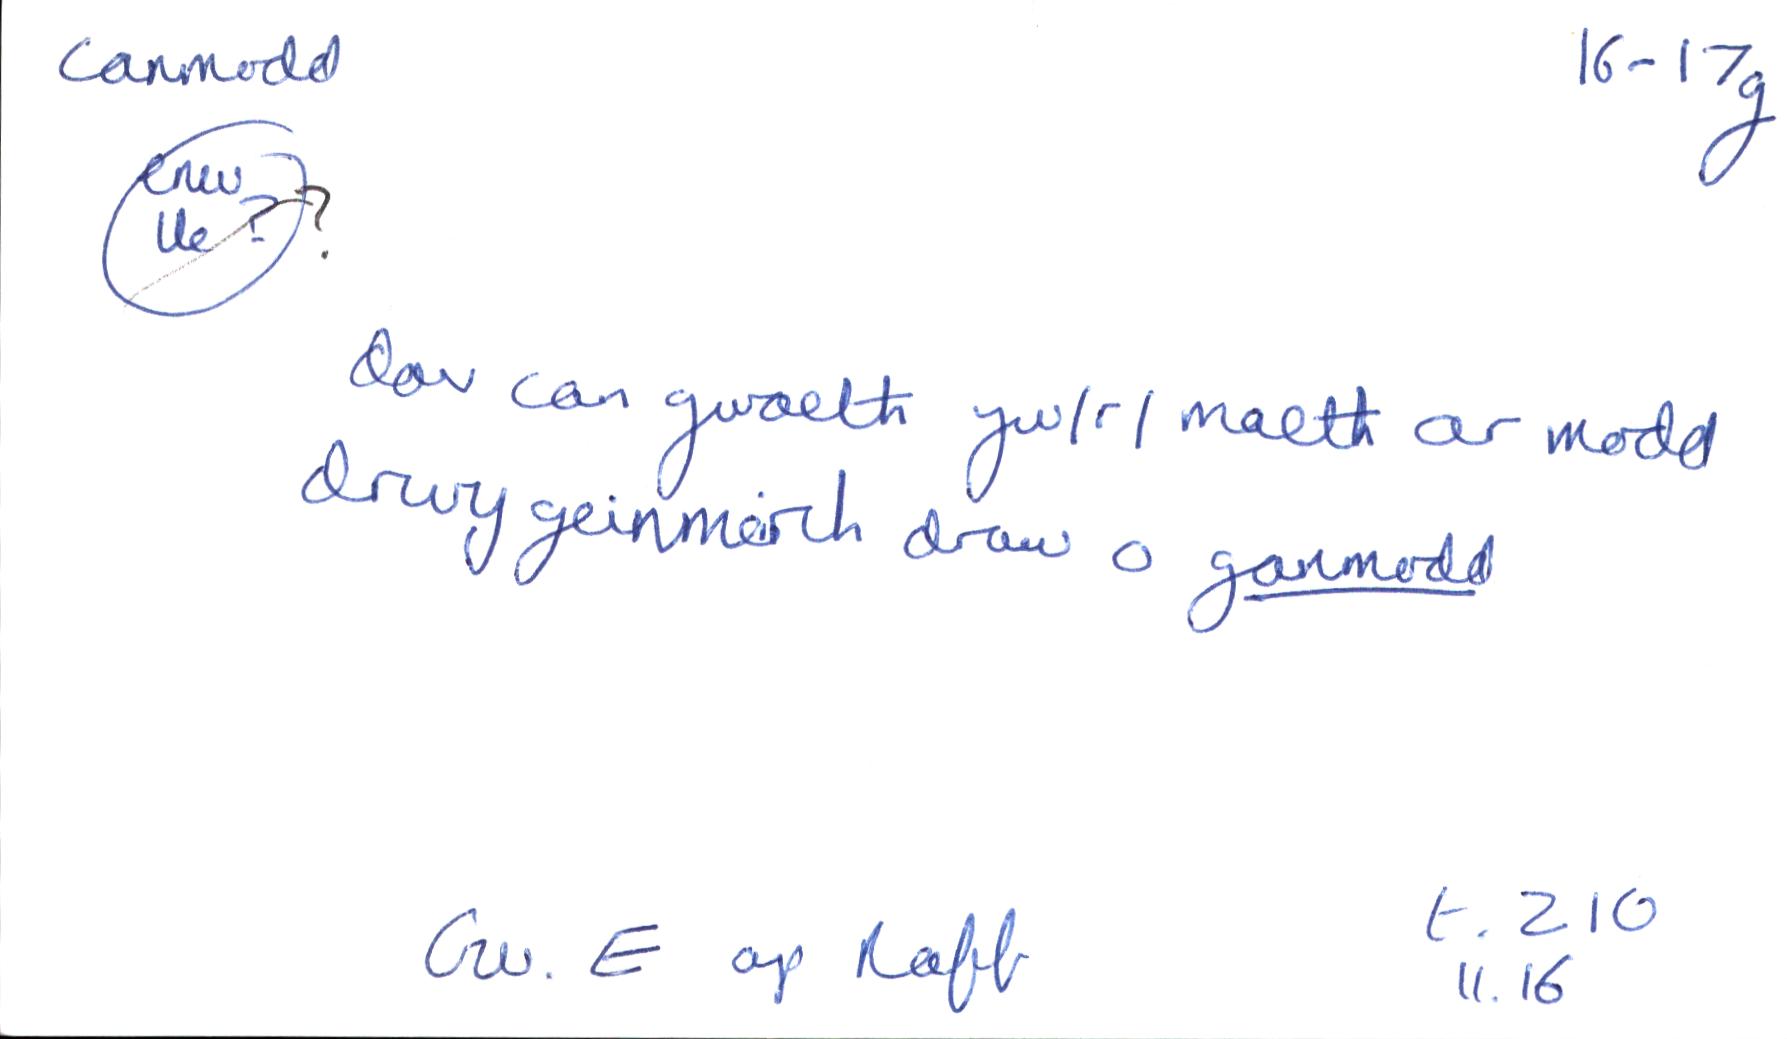 Canmodd
16-17g
enw
lle?
?
dav can gwaeth yw/r/ maeth ar modd
drwy geinmeirch draw o ganmodd
Gw. E ap Raff
t. 210
ll. 16